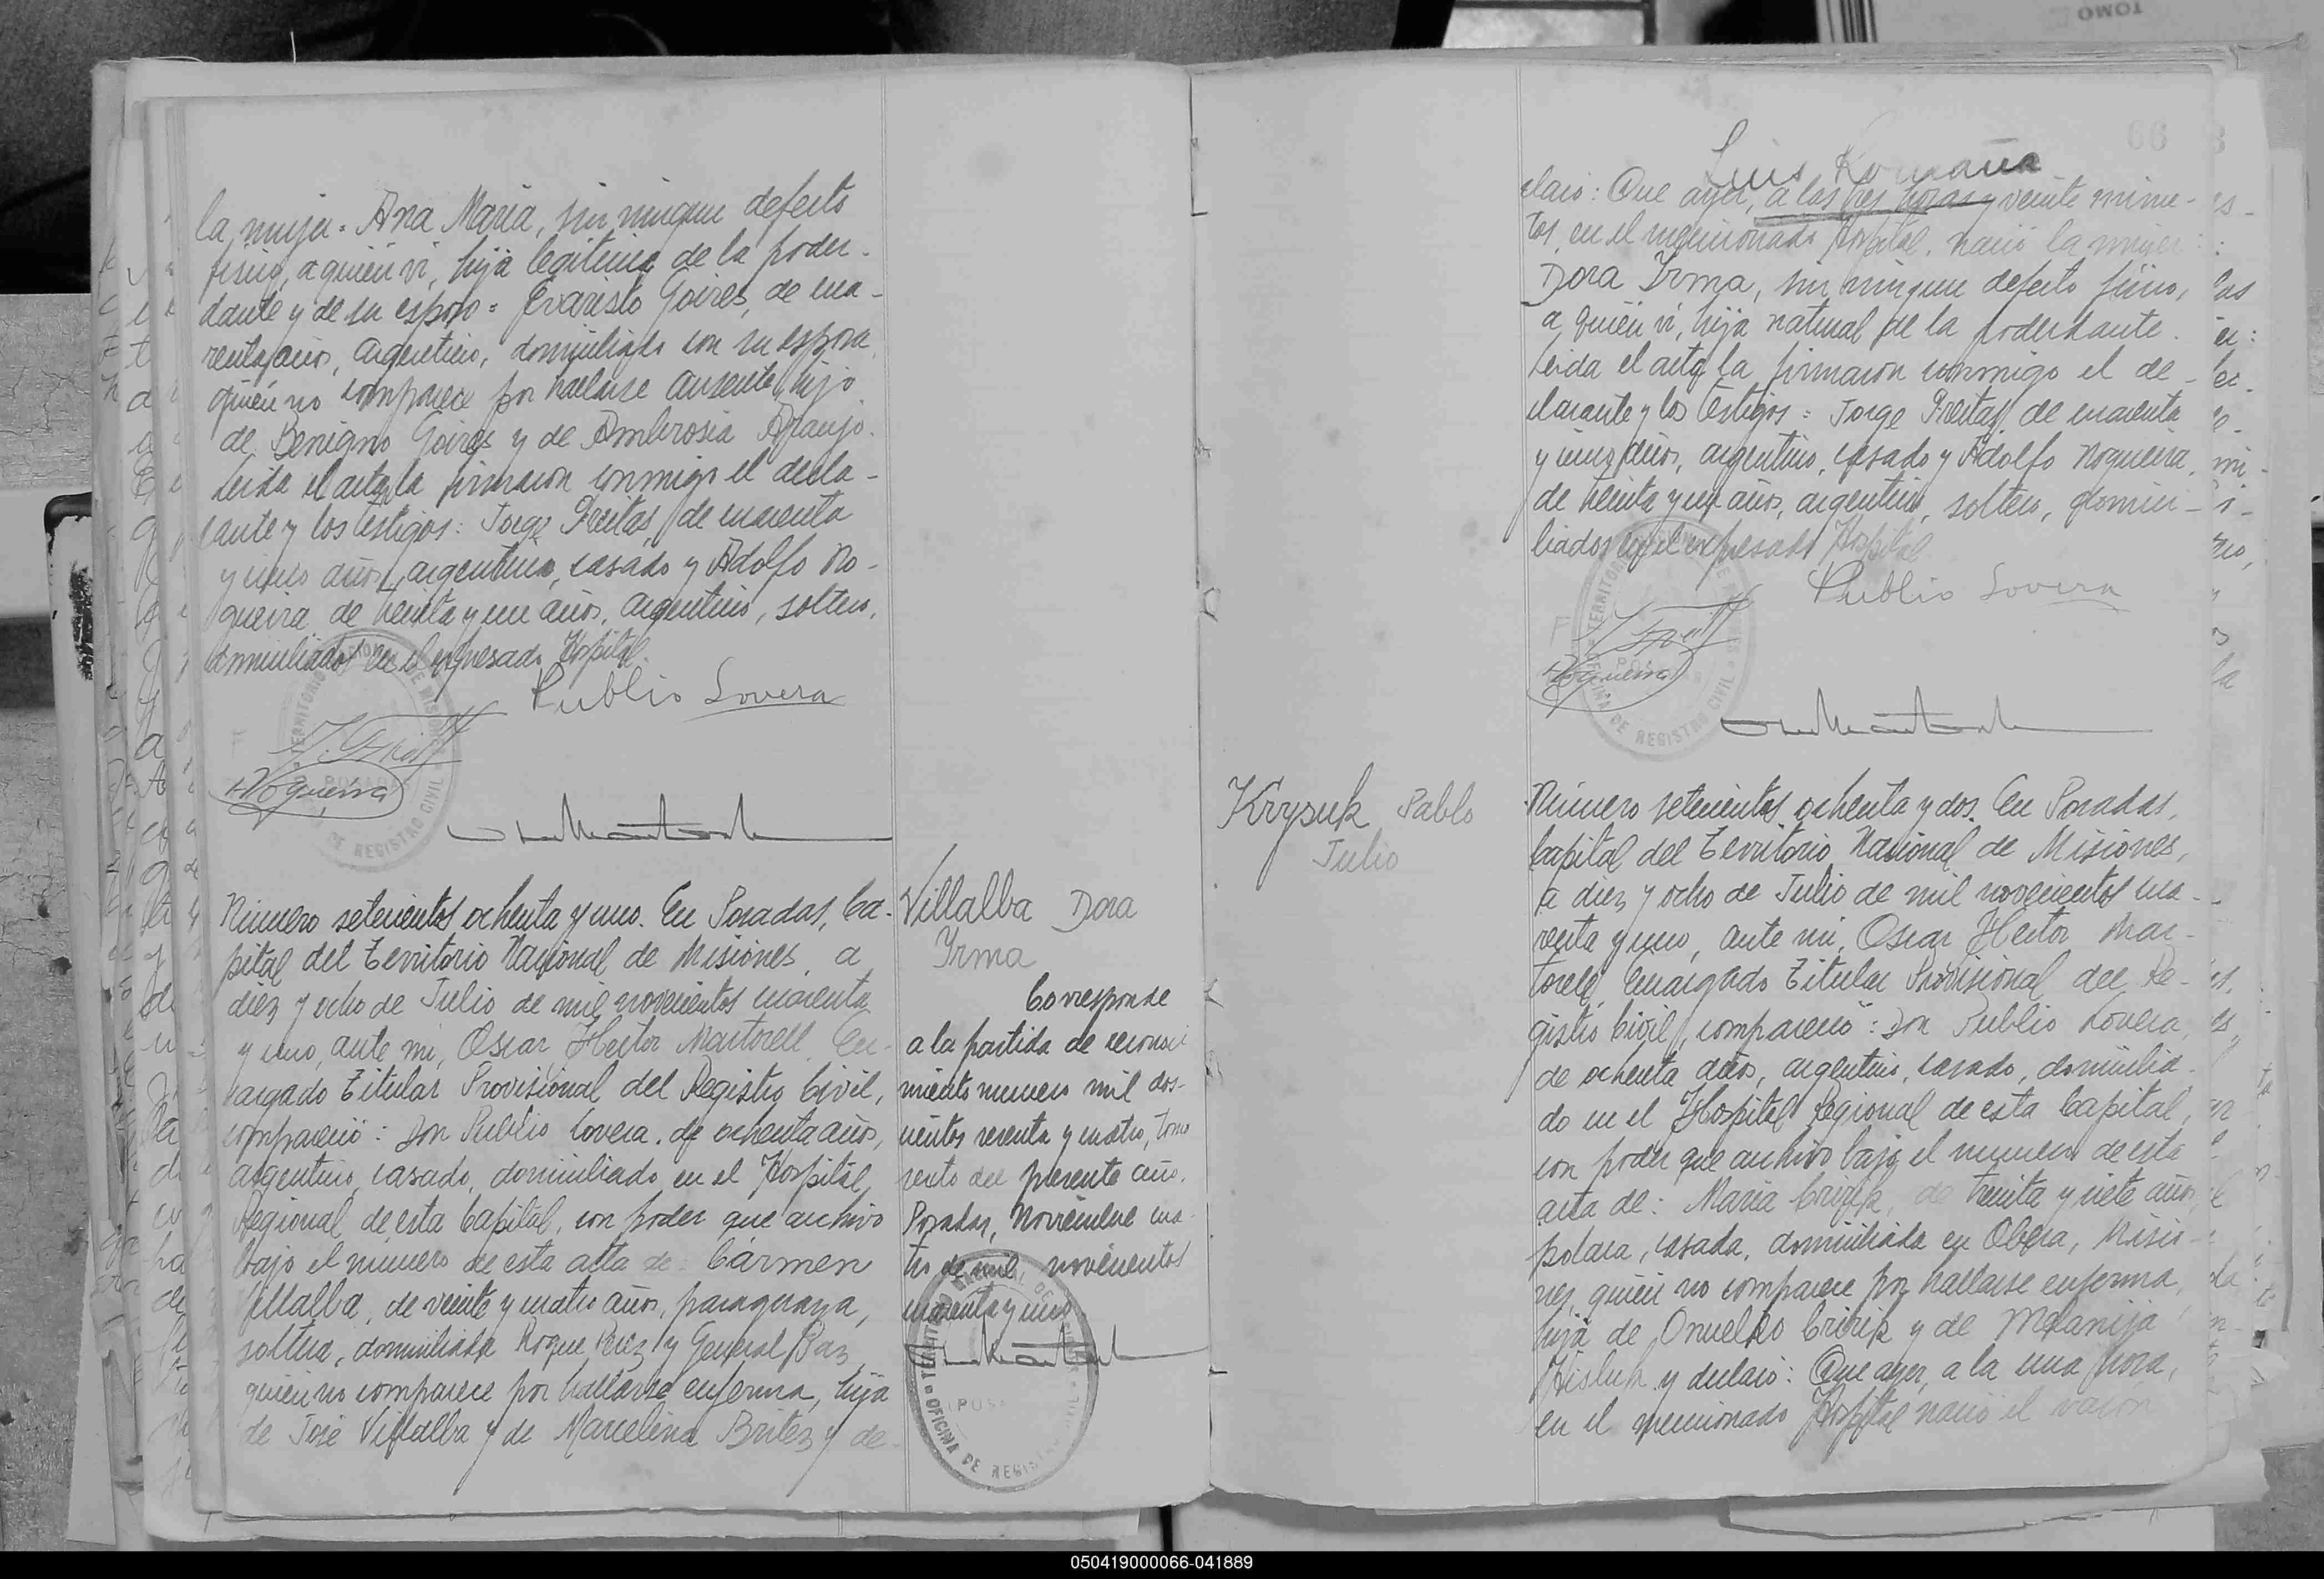 TOMO
la mujer: Ana Maria, sin ningun defecto
fisico, a quien vi, hija legitima de la poder-
dante y de su esposo: Evaristo Goires, de cua-
renta años, argentino, domiciliado con su esposa,
quien no comparece por hallarse ausente, hijo
de Benigno Goires y de Ambrosia Araujo.
Leida el acta la firmaron conmigo el decla-
rante y los testigos: Jorge Freitas, de cuarenta
y cinco años, argentino, casado y Adolfo No-
gueira de treinta y un años, argentino, soltero,
domiciliados en el expresado Hospital.
Publio Lovera
ANogueira
Número setecientos ochenta y uno. En Posadas, Ca-
pital del Territorio Nacional de Misiones, a
diez y ocho de Julio de mil novecientos cuarenta
y uno, ante mi, Oscar Hector Martorell, En-
cargado Titular Provisional del Registro Civil,
compareció: Don Publio Lovera, de ochenta años,
argentino, casado, domiciliado en el Hospital
Regional de esta Capital, con poder que archivo
bajo el numero de esta acta de: Cármen
Villalba, de veinte y cuatro años, paraguaya,
soltera, domiciliada Roque Perez y General Paz,
quien no comparece por hallarse enferma, hija
de José Villalba y de Marcelina Britez y de-
Villalba Dora
Yrma
Corresponde
a la partida de reconoci
miento numero mil dos-
cientos sesenta y cuatro, tomo
sexto del presente año.
Posadas, Noviembre cua-
tro de mil novecientos
cuarenta y uno
OFICINA DE REGISTRO CIVIL
66
Luis Romaña
claró: Que ayer, a las tres horas y veinte minu-
tos, en el mencionado Hospital, nació la mujer:
Dora Yrma, sin ningun defecto fisico,
a quien vi, hija natural de la poderdante.
Leida el acta la firmaron conmigo el de-
clarante y los testigos: Jorge Freitas, de cuarenta
y cinco años, argentino, casado y Adolfo Nogueira,
de treinta y un años, argentino, soltero, domici-
liados en el expresado Hospital.
Publio Lovera
ANogueira
Krysuk Pablo
Julio
Número setecientos ochenta y dos. En Posadas,
Capital del Territorio Nacional de Misiones,
a diez y ocho de Julio de mil novecientos cua-
renta y uno, ante mi, Oscar Hector Mar-
torell, Encargado Titular Provisional del Re-
gistro Civil, compareció: Don Publio Lovera,
de ochenta años, argentino, casado, domicilia-
do en el Hospital Regional de esta Capital,
con poder que archivo bajo el numero de esta
acta de: Maria de treinta y siete años,
polaca, casada, domiciliada en Oberá, Misio-
nes, quien no comparece por hallarse enferma,
hija de y de Melanija
y declaró: Que ayer, a la una hora,
en el mencionado Hospital nació el varón
050419000066-041889